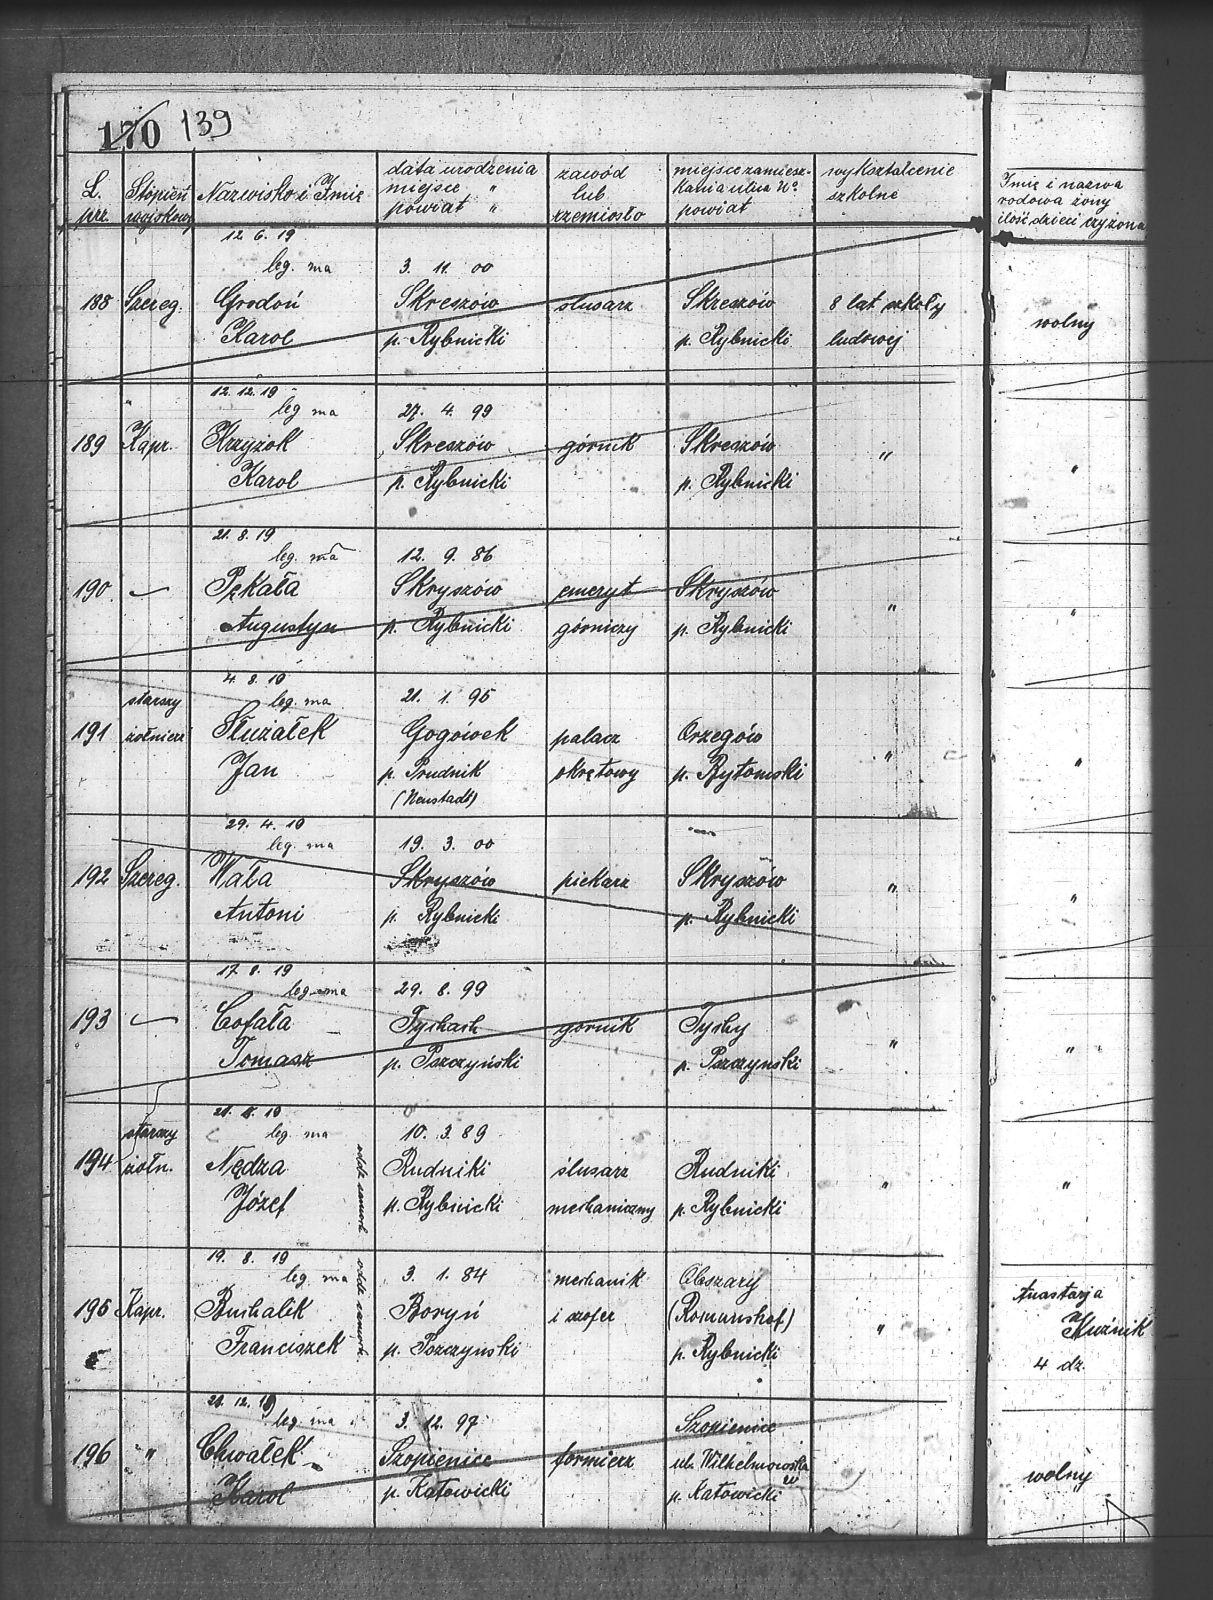 170 139
L. prz.
Stopień wojskowy
Nazwisko i Imię
data urodzenia
miejsce "
powiat "
zawód
lub
rzemiosło
miejsce zamiesz-
kania ulica No
powiat
wykształcenie
szkolne
Imię i nazwa
rodowa żony
ilość dzieci czy żona
12. 6. 19
leg. ma 3. 11. 00
188 Szereg. Grodoń Skreszów ślusarz Skrzeszów 8 lat szkoły
Karol p. Rybnicki p. Rybnicki ludowej
wolny
12. 12. 19
" leg ma 27. 4. 99
189 Kapr. Krzyżok Skreszów górnik Skreszów " "
Karol p. Rybnicki p. Rybnicki
21. 8. 19
leg. ma 12. 9. 86
190. Pękała Skryszów emeryt Skryszów " "
Augustyn p. Rybnicki górniczy p. Rybnicki
4. 8. 19
starszy leg. ma 21. 1. 95
191 żołnierz Służałek Gogówek palacz Orzegów " "
Jan p. Prudnik okrętowy p. Bytomski
(Neustadt)
29. 4. 19
leg. ma 19. 3. 00
192 Szereg. Wała Skryszów piekarz Skryszów " "
Antoni p. Rybnicki p. Rybnicki
17. 8. 19
leg. ma 29. 8. 99
193 Cofała Tychach gornik Tychy " "
Tomasz p. Pszczyński p. Pszczynski
21. 8. 19
starszy leg. ma 10. 3. 89
194 żołn. Nędza Rudniki ślusarz Rudniki " "
Józef p. Rybnicki mechaniczny p. Rybnicki
19. 8. 19
leg. ma 3. 1. 84 mechanik Obszary
195 Kapr. Buchalik Boryń i szofer (Romanshof) "
Franciszek p. Pszczynski p. Rybnicki
Anastazja
Kuźnik
4 dz.
21. 12. 19
leg. ma 3. 12. 97 Szopienice
196 " Chwałek Szopienice formierz ul. Wilhelmowska
Karol p. Katowicki p. Katowicki
wolny